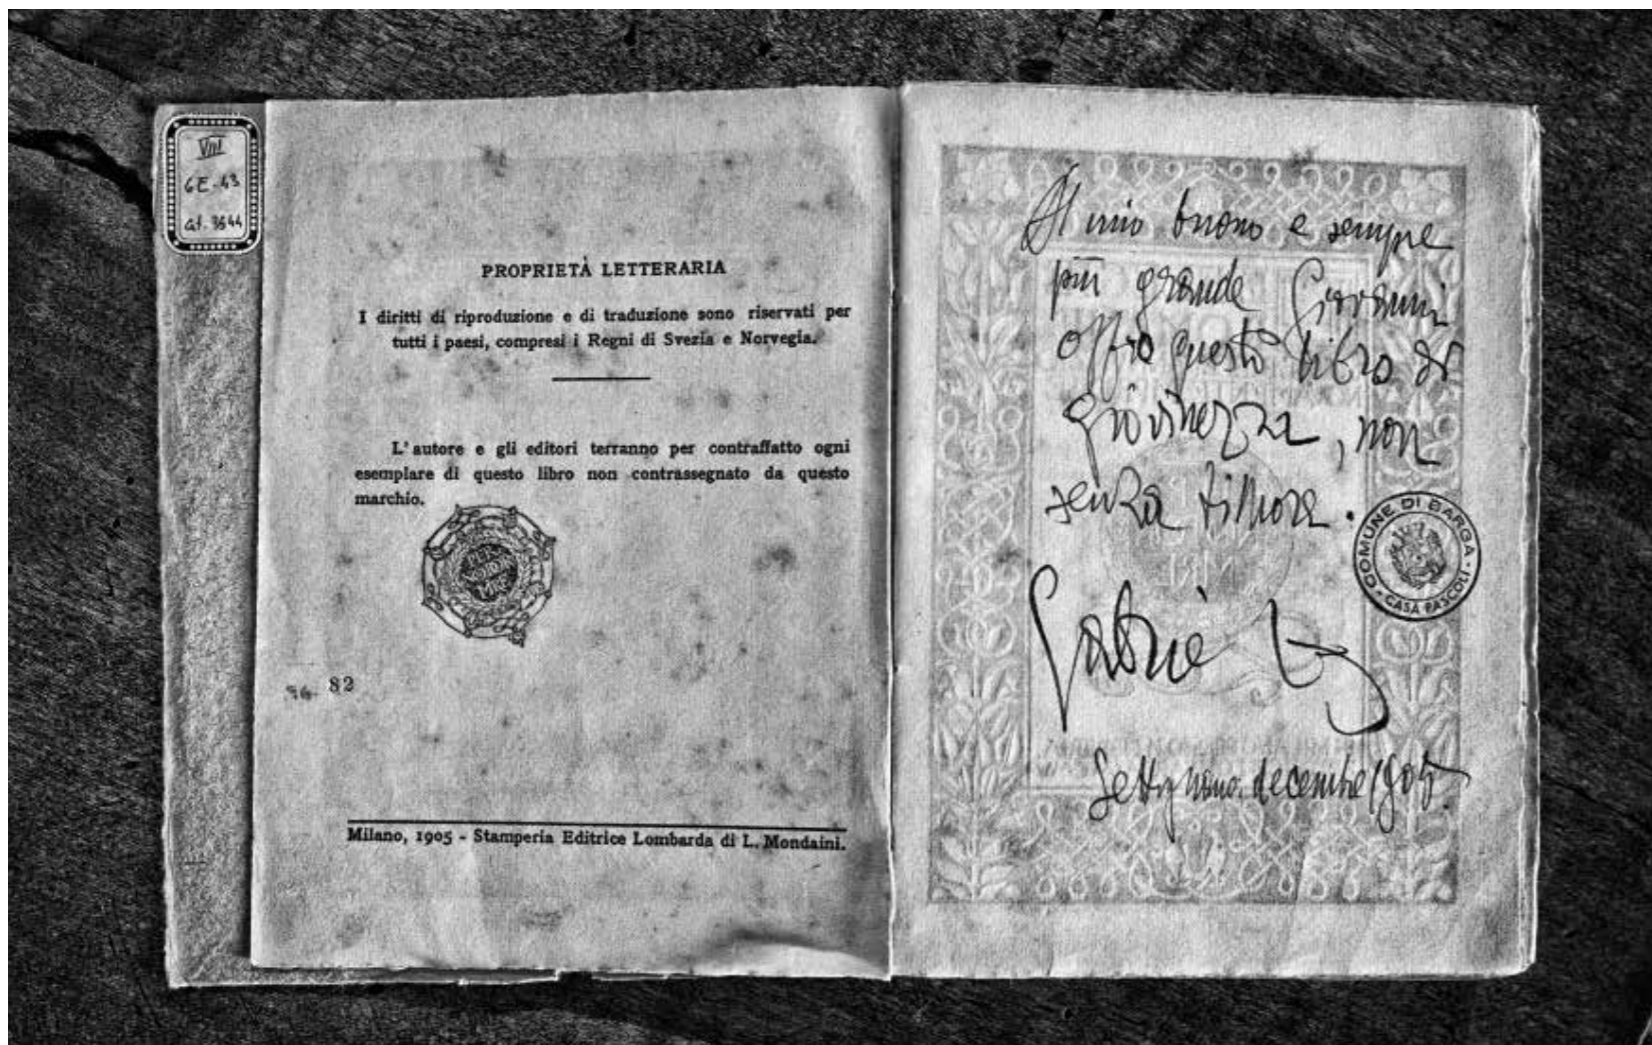 VIII
6E-43
at. 3644
PROPRIETÀ LETTERARIA
I diritti di riproduzione e di traduzione sono riservati per
tutti i paesi, compresi i Regni di Svezia e Norvegia.
L'autore e gli editori terranno per contraffatto ogni
esemplare di questo libro non contrassegnato da questo
marchio.
82
Milano, 1905 - Stamperia Editrice Lombarda di L. Mondaini.
Al mio buono e sempre
più grande Giovanni
offro questo libro di
giovinezza, non
senza timore.
COMUNE DI BARGA
CASA PASCOLI
Gabriele
Settignano. decembre 1905.